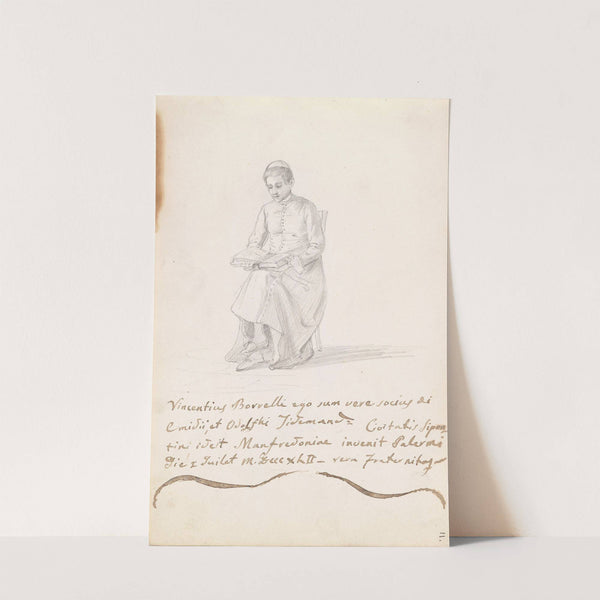 Vincentius Borrelli ego sum vere socius di
Emidii, et Odolfhi Tidemand. Civitatis Sipon
tini idest Manfredoniae invenit Palermi
Die I Juilet M.Dccc xLII — vera fraternitas